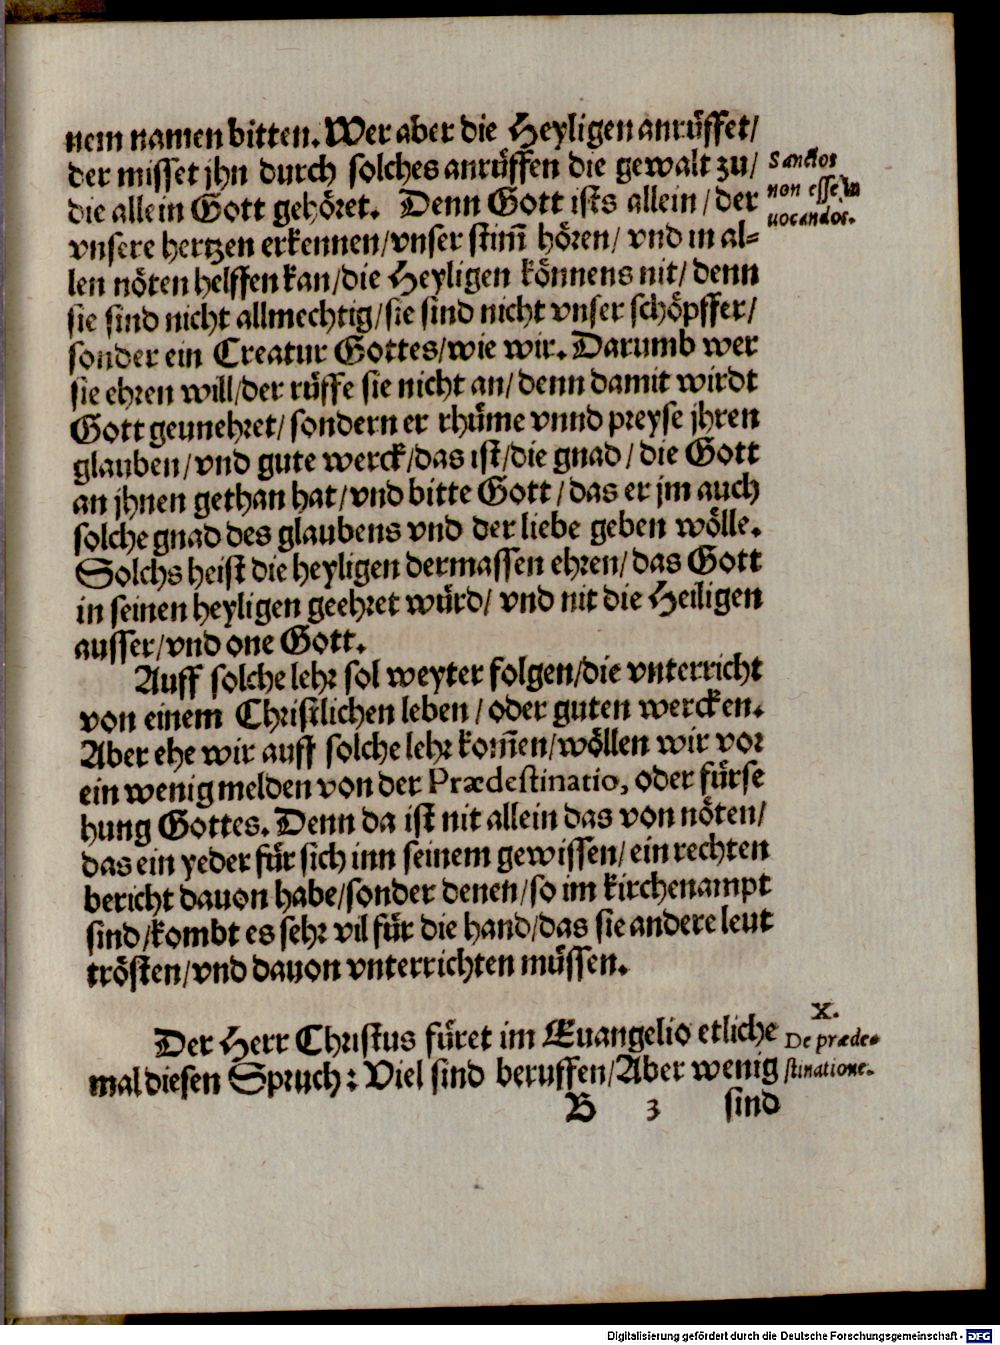 nem namen bitten. Wer aber die Heyligen anrüffet/
der misset jhn durch solches anrüffen die gewalt zu/
die allein Gott gehöret. Denn Gott ists allein/der
vnsere hertzen erkennen/vnser stim̄ hören/ vnd in al-
len nöten helffen kan/die Heyligen könnens nit/ denn
sie sind nicht allmechtig/sie sind nicht vnser schöpffer/
sonder ein Creatur Gottes/wie wir. Darumb wer
sie ehren will/der rüffe sie nicht an/ denn damit wirdt
Gott geunehret/ sondern er rhüme vnnd preyse jhren
glauben/vnd gute werck/das ist/die gnad/ die Gott
an jhnen gethan hat/vnd bitte Gott/das er jm auch
solche gnad des glaubens vnd der liebe geben wölle.
Solchs heist die heyligen dermassen ehren/das Gott
in seinen heyligen geehret würd/ vnd nit die Heiligen
ausser/vnd one Gott.
Sanctos
non esse in
uocandos.
Auff solche lehr sol weyter folgen/die vnterricht
von einem Christlichen leben/oder guten wercken.
Aber ehe wir auff solche lehr kom̄en/wöllen wir vor
ein wenig melden von der Prædestinatio, oder fürse
hung Gottes. Denn da ist nit allein das von nöten/
das ein yeder für sich inn seinem gewissen/ein rechten
bericht dauon habe/sonder denen/so im kirchenampt
sind/kombt es sehr vil für die hand/das sie andere leut
trösten/vnd dauon vnterrichten müssen.
X.
De præde-
stinatione.
Der Herr Christus füret im Euangelio etliche
mal diesen Spruch: Viel sind beruffen/Aber wenig
B 3 sind
Digitalisierung gefördert durch die Deutsche Forschungsgemeinschaft - DFG